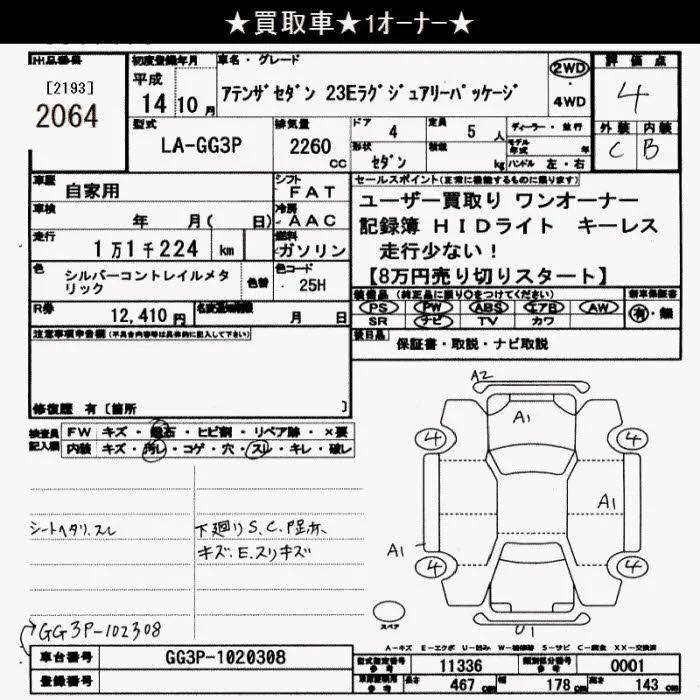 ★買取車★1オーナー★
出品番号
[2193]
2064
初度登録年月
平成
14年 10月
車名・グレード
アテンザセダン 23Eラグジュアリーパッケージ
2WD
・
4WD
評価点
4
外装 内装
C B
型式
LA-GG3P
排気量
2260 cc
ドア 4
形状 セダン
定員 5 人
積載 kg
ディーラー・並行
モデル年式 年
ハンドル 左・右
車歴 自家用
シフト FAT
車検 年 月(日)
冷房 AAC
走行 1万1千224 km
燃料 ガソリン
色 シルバーコントレイルメタリック
色替
色コード 25H
R券 12,410円
名変期限 月 日
セールスポイント(正常に機能するものに限ります)
ユーザー買取り ワンオーナー
記録簿 HIDライト キーレス
走行少ない!
【8万円売り切りスタート】
装備品(純正品に限り○をつけてください)
PS PW ABS エアB AW
SR ナビ TV カワ
新車保証書
有・無
後日品 保証書・取説・ナビ取説
注意事項申告欄(不具合内容等は具体的に記入して下さい)
修復歴 有 [箇所 ]
検査員記入欄
FW キズ・飛石・ヒビ割・リペア跡・×要
内装 キズ・汚レ・コゲ・穴・スレ・キレ・破レ
シートヘタリ.スレ
下廻りS.C.
キズ.E.スリキズ
A2
A1
4 4
A1
A1
4 4
U1
スペア
GG3P-102308
A-キズ E-エクボ U-凹み W-補修跡 S-サビ C-腐食 XX-交換済
車台番号 GG3P-1020308
登録番号
型式指定番号 参考 11336
類別区分番号 参考 0001
長さ 467 cm 幅 178 cm 高さ 143 cm